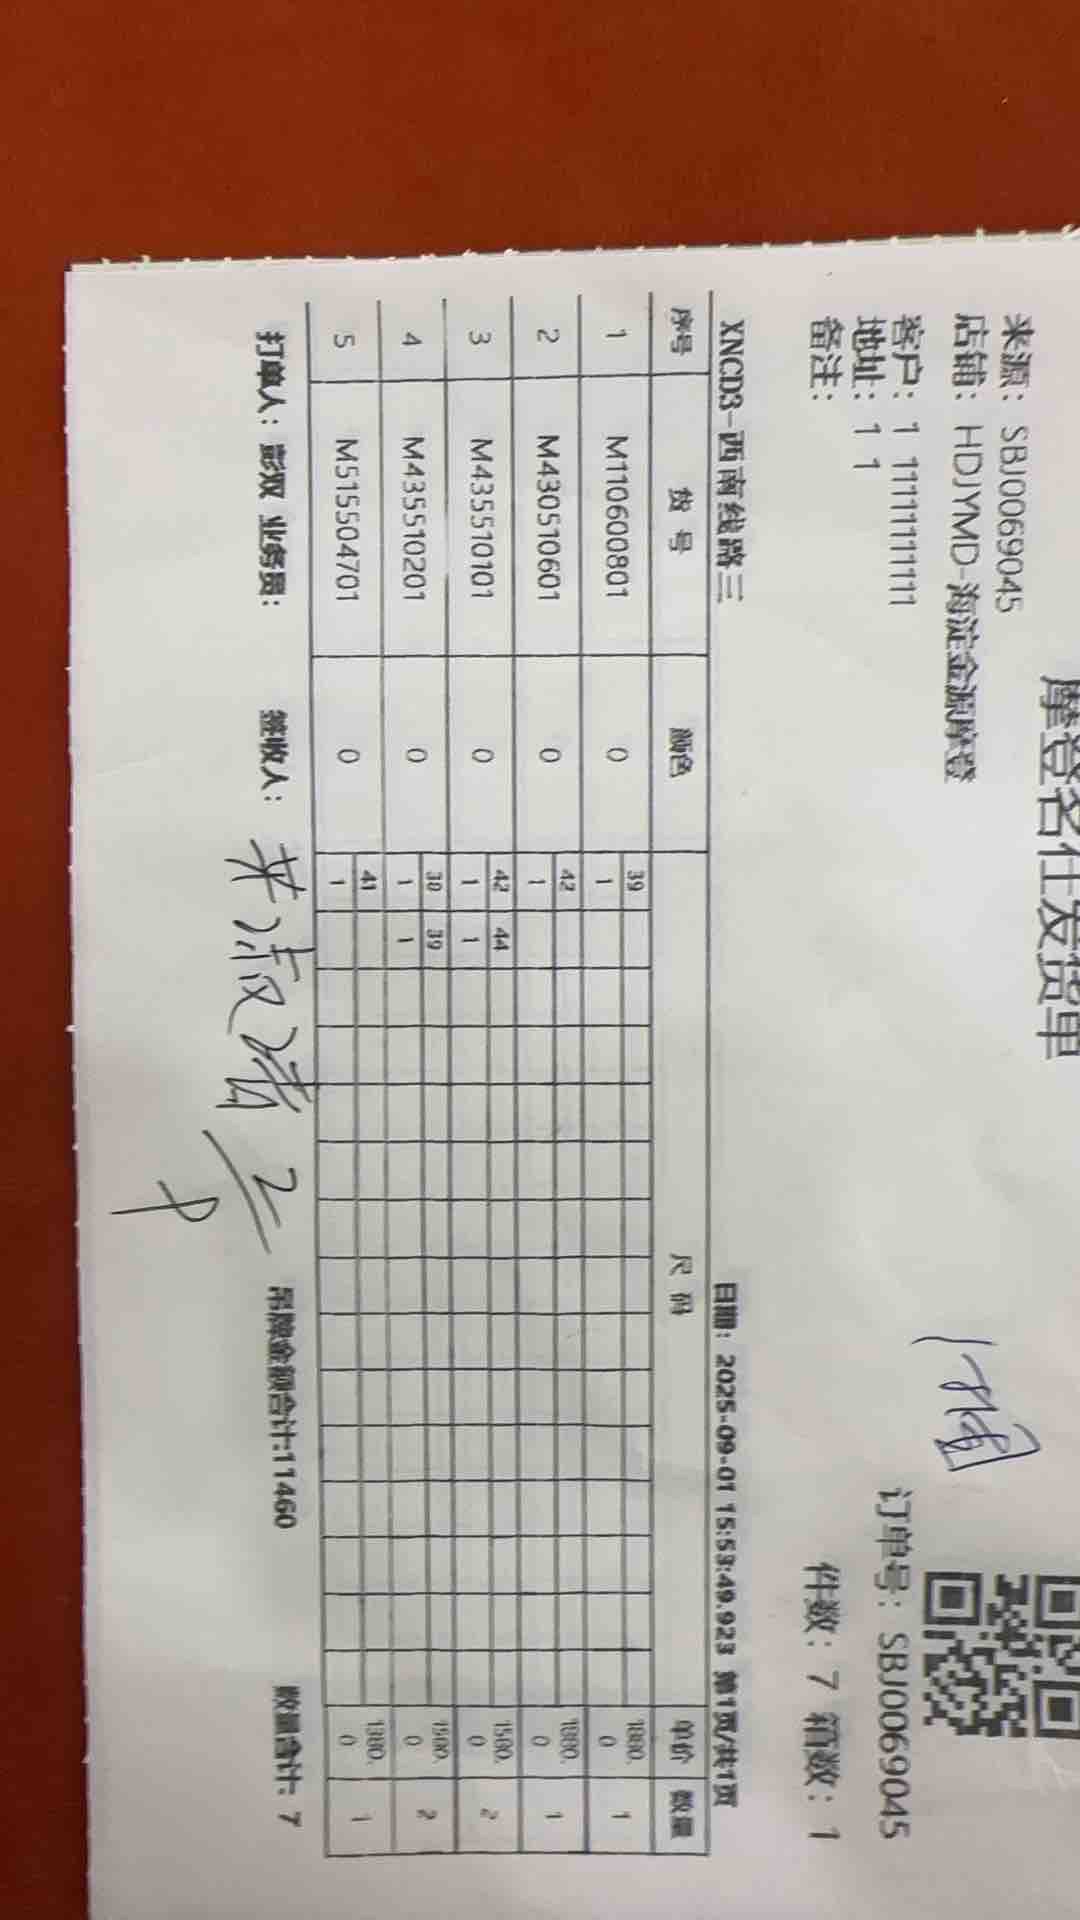 摩登名仕发货单
来源: SBJ0069045
店铺: HDJYMD-海淀金源摩登
客户: 1 1111111111 订单号: SBJ0069045
地址: 1 1
备注: 件数: 7 箱数: 1
XNCD3-西南线路三 日期: 2025-09-01 15:53:49.923 第1页/共1页
序号 货号 颜色 尺码 单价 数量
1 M110600801 0 39 1 1880.0 1
2 M430510601 0 42 1 1880.0 1
3 M435510101 0 42 44 1 1 1580.0 2
4 M435510201 0 38 39 1 1 1580.0 2
5 M515504701 0 41 1 1380.0 1
打单人: 彭双 业务员: 签收人: 吊牌金额合计:11460 数量合计: 7